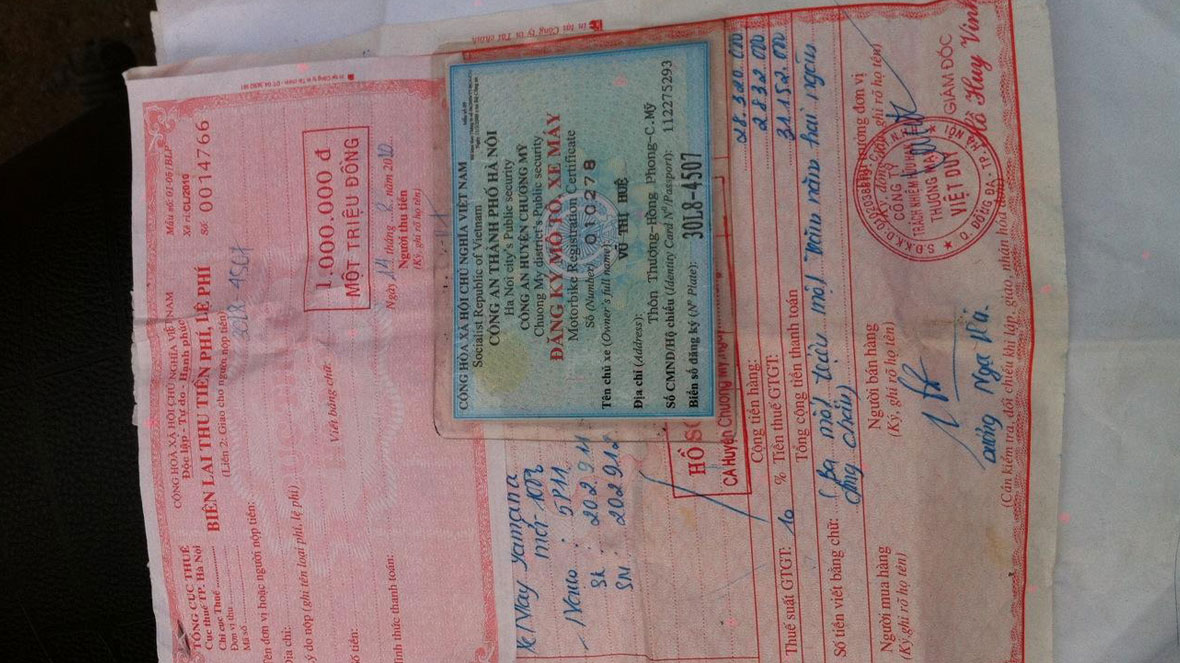 TỔNG CỤC THUẾ
Cục thuế TP. Hà Nội
Chi cục Thuế
Đơn vị thu
Mã số
CỘNG HÒA XÃ HỘI CHỦ NGHĨA VIỆT NAM
Độc lập - Tự do - Hạnh phúc
BIÊN LAI THU TIỀN PHÍ, LỆ PHÍ
(Liên 2: Giao cho người nộp tiền)
Mẫu số: 01-05/BLP
Xê ri: CL/2010
Số 0014766
Tên đơn vị hoặc người nộp tiền:
30L8-4507
Địa chỉ:
Lý do nộp (ghi tên loại phí, lệ phí)
Số tiền:
Viết bằng chữ:
1.000.000 đ
MỘT TRIỆU ĐỒNG
Hình thức thanh toán:
Người thu tiền
(Ký, ghi rõ họ tên)
CỘNG HÒA XÃ HỘI CHỦ NGHĨA VIỆT NAM
Socialist Republic of Vietnam
CÔNG AN THÀNH PHỐ HÀ NỘI
Ha Noi city's Public security
CÔNG AN HUYỆN CHƯƠNG MỸ
Chuong My district's Public security
ĐĂNG KÝ MÔ TÔ, XE MÁY
Motorbike Registration Certificate
Số (Number): 010278
Tên chủ xe (Owner's full name):
VŨ THỊ HUỆ
Địa chỉ (Address):
Thôn Thượng-Hồng Phong-C.Mỹ
Số CMND/Hộ chiếu (Identity Card Nº/Passport): 112275293
Biển số đăng ký (Nº Plate): 30L8-4507
Xe Máy yamaha
mới 100%
5P11
SK : 202911
SM : 202912
HỒ
CA Huyện Chương Mỹ
Cộng tiền hàng: 28.320.000
Thuế suất GTGT: 10 % Tiền thuế GTGT: 2832.000
Tổng cộng tiền thanh toán 31.152.000
Số tiền viết bằng chữ: (Ba một triệu một trăm năm hai ngàn
đồng chẵn)
Người mua hàng
(Ký, ghi rõ họ tên)
Người bán hàng
(Ký, ghi rõ họ tên)
Thủ trưởng đơn vị
(Ký, đóng dấu, ghi rõ họ tên)
CÔNG TY
TRÁCH NHIỆM HỮU HẠN
THƯƠNG MẠI
VIỆT DUY
Q. ĐỐNG ĐA - TP. HÀ NỘI
GIÁM ĐỐC
Hồ Huy Vinh
(Cần kiểm tra, đối chiếu khi lập, giao, nhận hóa đơn)